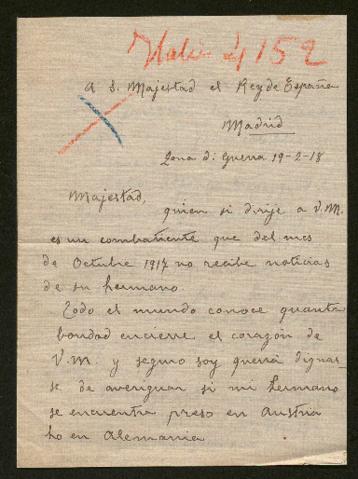 Italia 4152
A S. Majestad el Rey de España
Madrid
Zona di Guerra 19-2-18
Majestad,
quien si dirije a V.M.
es un combatiente que del mes
de Octubre 1917 no recibe noticias
de su hermano.
Todo el mundo conoce quanta
bondad encierre el corazón de
V.M. y seguro soy querrá dignar-
se de averiguar si mi hermano
se encuentra preso en Austria
ho en Alemania